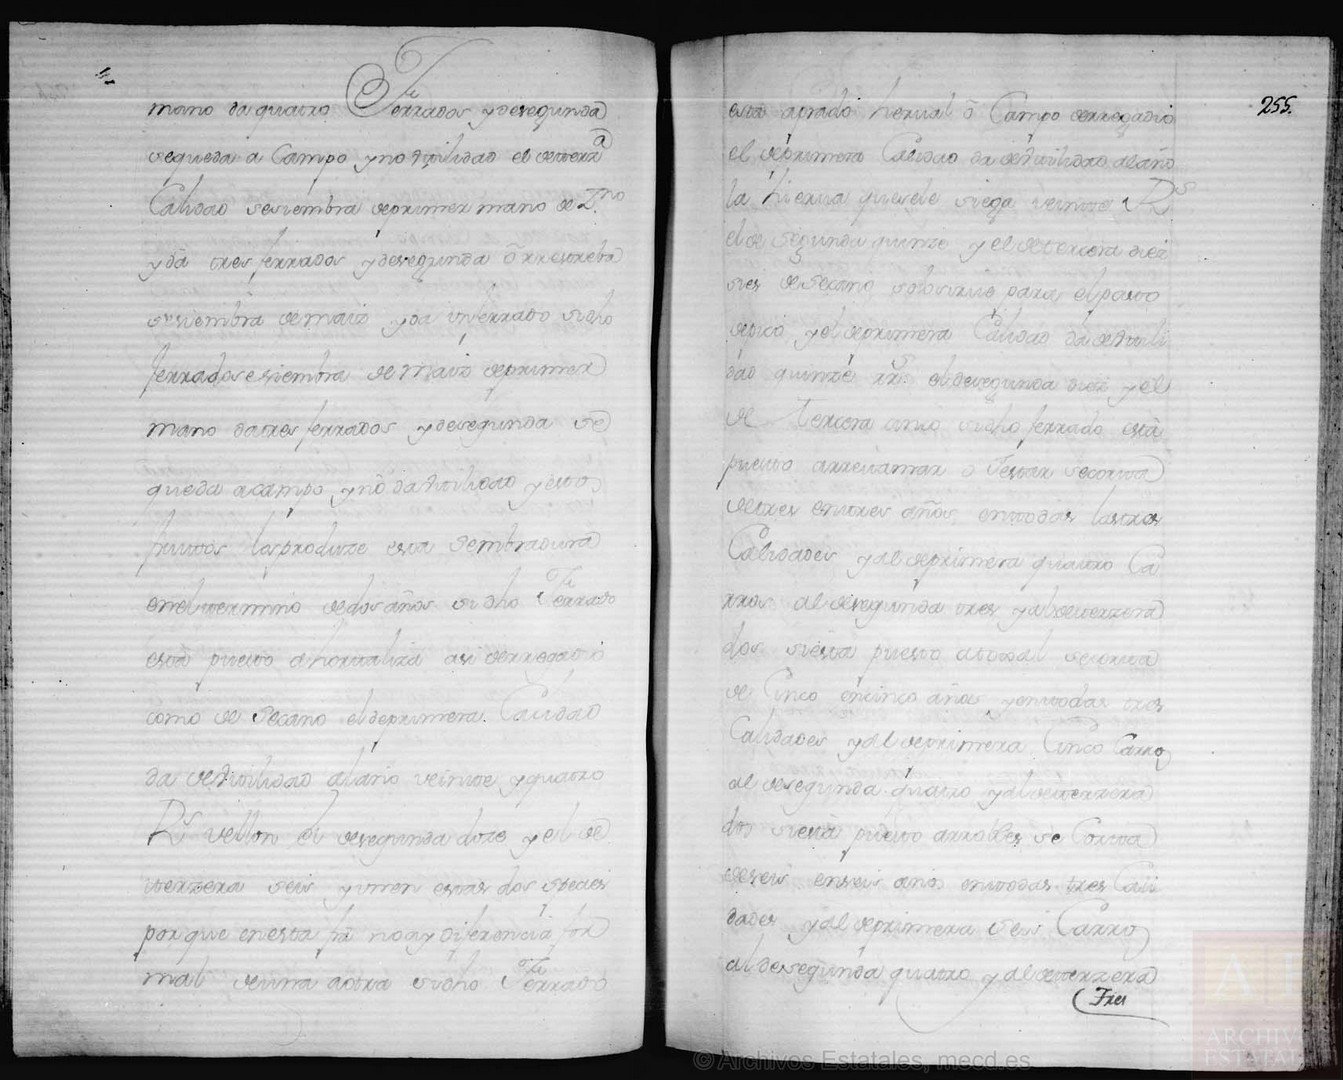 mano da quatro Ferrados y desegunda
sequeda a Campo y no dá utilidad el deterza
Calidad sesiembra deprimer mano de Trno
y da tres ferrados y desegunda ó rrestreba
sesiembra demaiz y da un ferrado si dho
ferrado sesiembra de Maiz deprimer
mano datres ferrados y desegunda se
queda acampo y nó da utilidad y estos
frutos los produze esta Sembradura
en el termino dedos años si dho Ferrado
está puesto a hortaliza asi derregadio
como de Secano el deprimera Calidad
da de utilidad al año veinte y quatro
Rs vellon el desegunda doze y el de
terzera seis y unen estas dos speties
porque en esta fra no ay diferencia for
mal de una aotra si dho Ferrado
255.
está aprado herual ó Campo derregadio
el deprimera Calidad da de utilidad al año
la hierua quesele siega veinte Rs
el de segunda quinze y el detercera diez
si es desecano solo sirue para el pasto
depico y el deprimera Calidad da de utili
dad quinze rrs. el desegunda diez y el
de tercera cinco si dho ferrado está
puesto arretamar o Tojar secorta
detres entres años en todas lastres
Calidades y da el deprimera quatro Ca
rros al desegunda tres y al deterzera
dos si está puesto atojal secorta
de Cinco encinco años y en todas tres
Calidades y da el deprimera Cinco Carros
al desegunda quatro y al deterzera
dos si está puesto arrobles se Corta
deseis enseis años en todas tres Cali
dades y da el deprimera seis Carros
al desegunda quatro y al deterzera
Tres
© Archivos Estatales, mecd.es
ARCHIVOS
ESTATALES